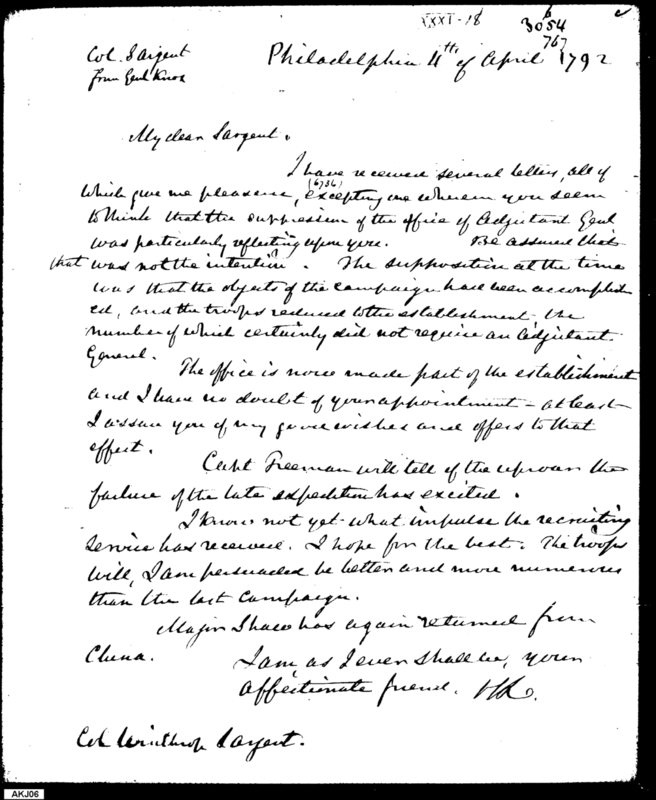 XXXI-18
3054
767
Col. Sargent
from Genl Knox
Philadelphia 4th of April 1792
My dear Sargent.
I have received several letters, all of
which give me pleasure, excepting one wherein you seem
(6736)
to think that the suppression of the office of Adjutant Genl
was particularly reflecting upon you. Be assured that
that was not the intention. The supposition at the time
was that the objects of the campaign had been accomplish
ed, and the troops reduced to the establishment the
number of which certainly did not require an Adjutant
General.
The office is now made part of the establishment
and I have no doubt of your appointment - at least
I assure you of my good wishes and offers to that
effect.
Capt Freeman will tell of the uproar the
failure of the late expedition has excited.
I know not yet what impulse the recruiting
service has received. I hope for the best. The troops
will, I am persuaded be better and more numerous
than the last campaign.
Major Shaw has again returned from
China. I am, as I ever shall be, your
affectionate friend. HK.
Col Winthrop Sargent.
AKJ06